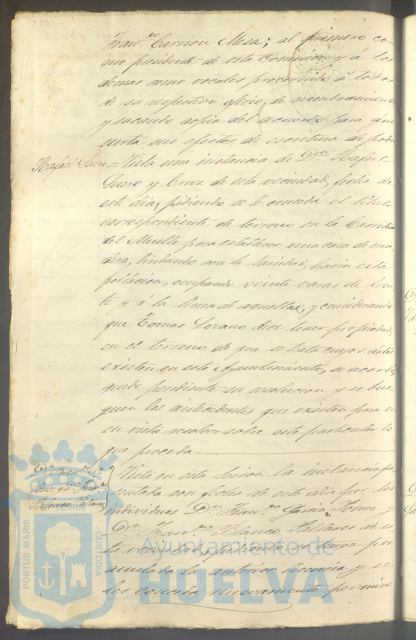 Fran.co Carrion Mesa; al primero co
mo presidente de esta Comision y á los
demas como vocales
de su respectivo oficio, de nombramiento
y sacando copia del acuerdo para que
surta sus efectos de escritura de poder
Rafael Suero = Vista una instancia de Dn. Rafael
Suero y Cruz de esta vecindad, fecha de
este dia, pidiendo se le conceda el título
correspondiente de terreno en la Carretera
del Muelle para establecer una casa de ma
dera, lindando con la Sanidad, hacia esta
poblacion, ocupando veinte varas de fren
te y á la linea de aquellas, y considerando
que Tomas Lozano dice tener propiedad
en el terreno de que se trata cuyos
existen en este Ayuntamiento, se acordó
quede pendiente su resolucion y se bus
quen los antecedentes que existen para en
su vista resolver sobre este particular lo
que proceda
Vista en esta sesion la instancia pre
sentada con fecha de este dia por los
individuos Dn. Fran.co Garcia
Dn. Fran.co Blanco de es
ta vecindad, por
anulada la anterior licencia y se
les conceda nuevamente permiso
PORTUS MARIS
CUSTODIA
Ayuntamiento de
HUELVA